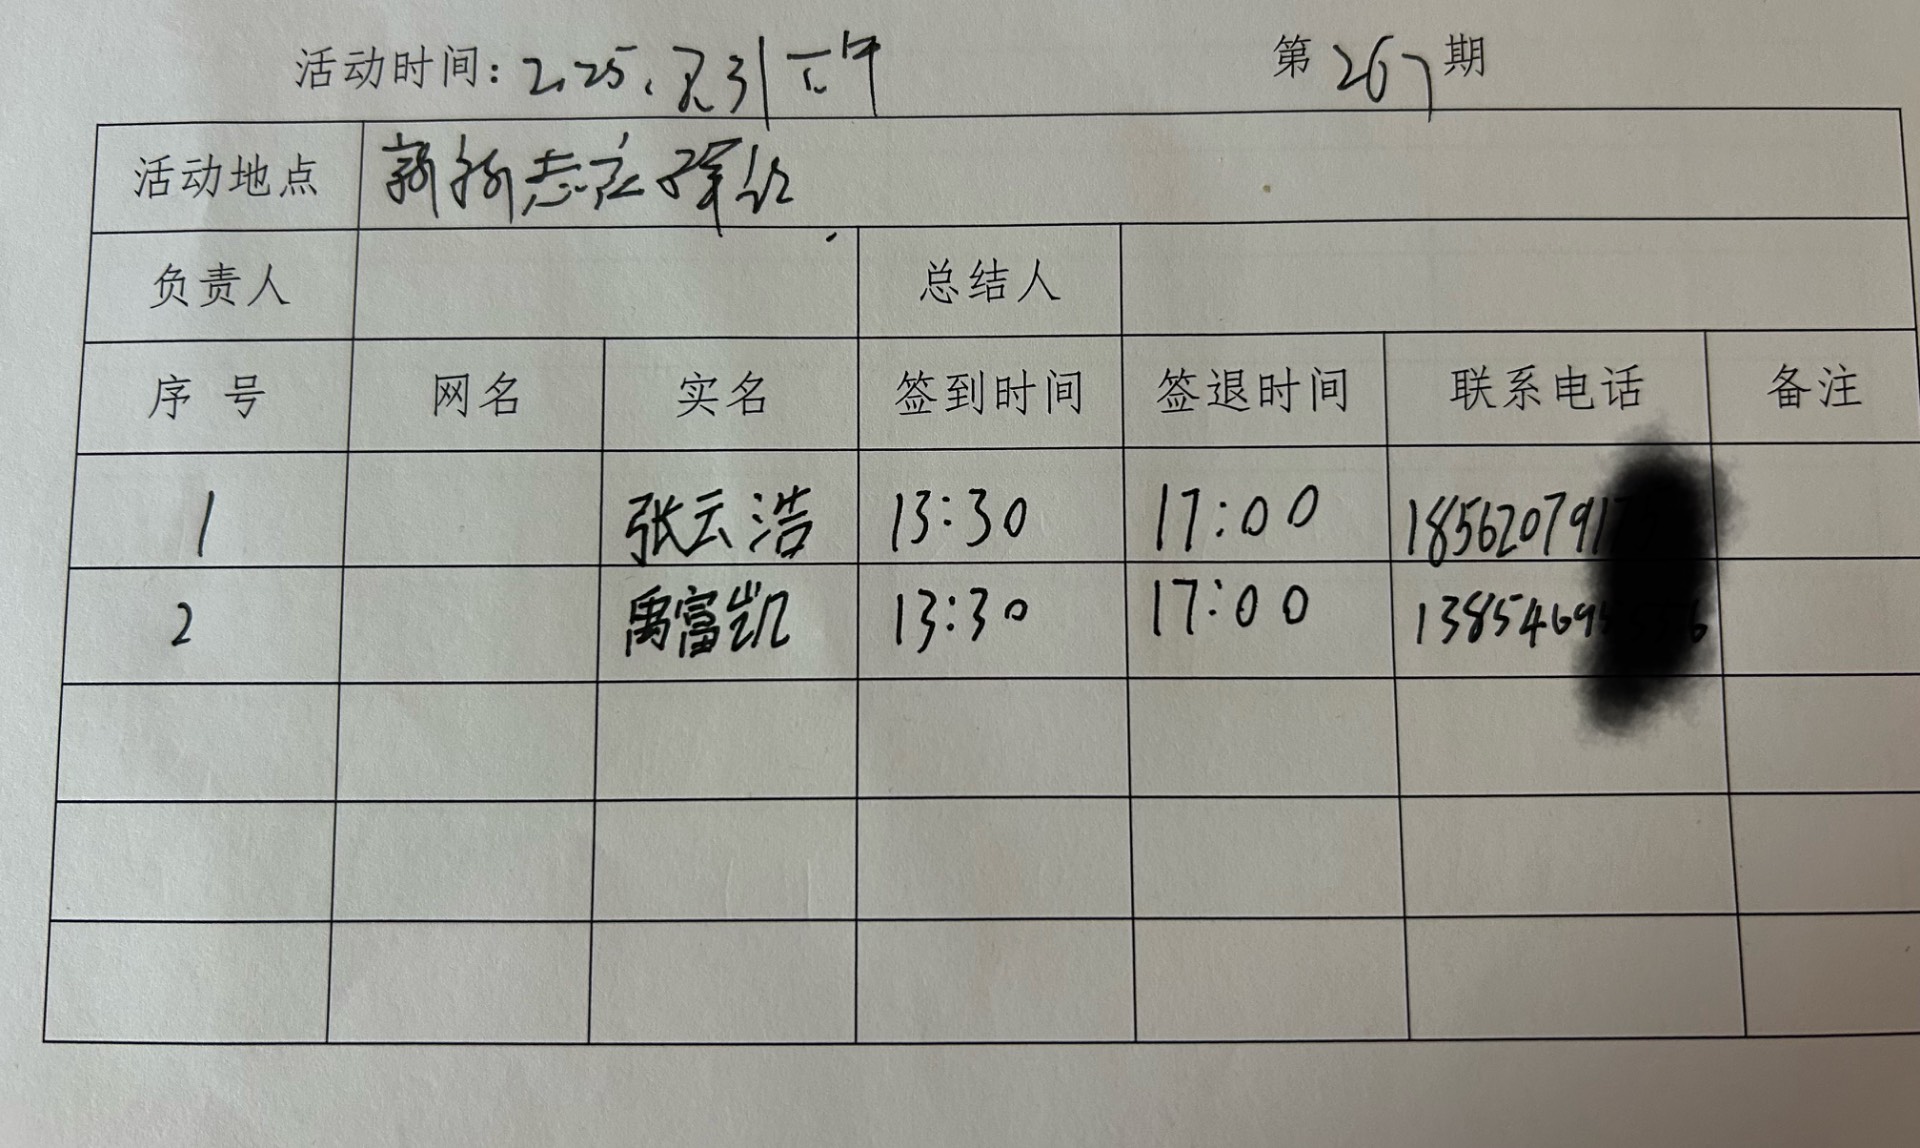 活动时间: 2025. 8.31 下午 第267期
活动地点
负责人 总结人
序号 网名 实名 签到时间 签退时间 联系电话 备注
1 张云浩 13:30 17:00 185620791
2 禹富凯 13:30 17:00 1385469